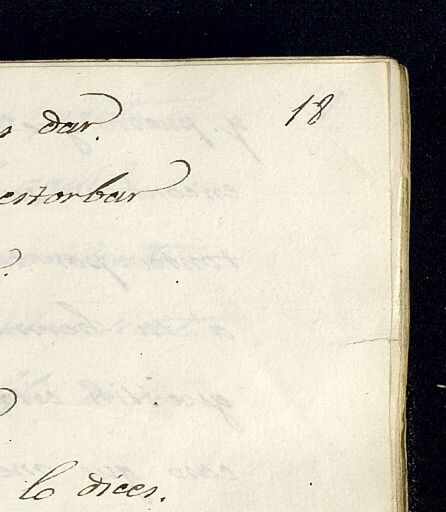 18
dar.
estorbar
lo dices.